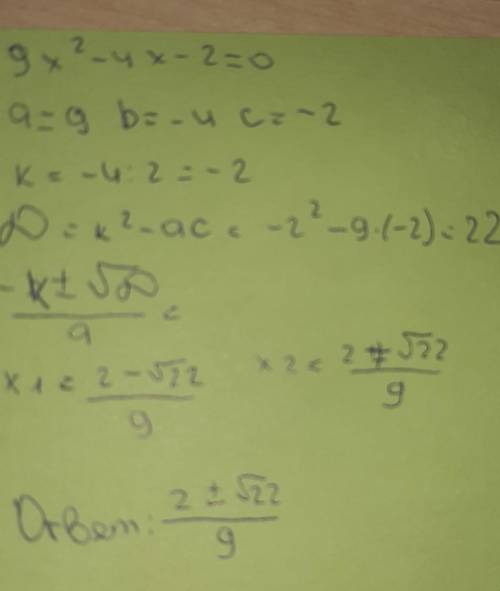 9x² - 4x - 2 = 0
a = 9 b = -4 c = -2
k = -4 : 2 = -2
D = k² - ac = -2² - 9·(-2) = 22
-k ± √D / a =
x1 = 2 - √22 / 9 x2 = 2 + √22 / 9
Ответ: 2 ± √22 / 9